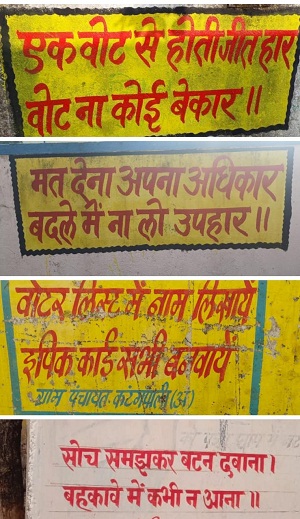 एक वोट से होती जीत हार
वोट ना कोई बेकार ॥
मत देना अपना अधिकार
बदले में ना लो उपहार ॥
वोटर लिस्ट में नाम लिखायें
इपिक कार्ड सभी बनवायें
ग्राम पंचायत- कटंगपाली (अ)
सोच समझकर बटन दबाना।
बहकावे में कभी न आना ॥